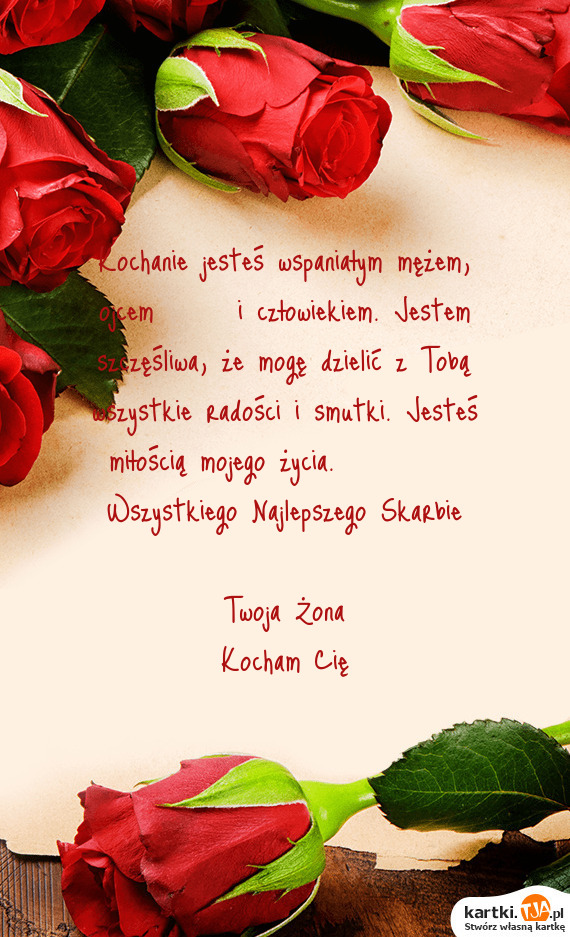 Kochanie jesteś wspaniałym mężem,
ojcem i człowiekiem. Jestem
szczęśliwa, że mogę dzielić z Tobą
wszystkie radości i smutki. Jesteś
miłością mojego życia.
Wszystkiego Najlepszego Skarbie
Twoja Żona
Kocham Cię
kartki.TJA.pl
Stwórz własną kartkę